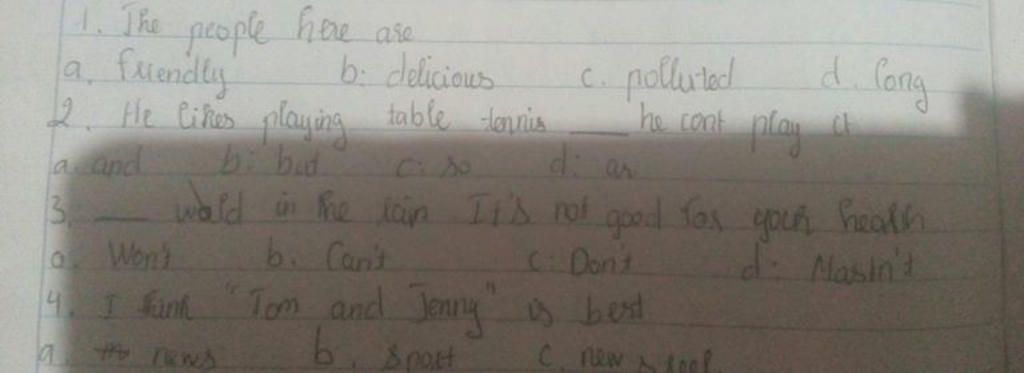 1. The people here are
a. friendly b: delicious c. polluted d. long
2. He likes playing table tennis ___ he cont play it
a. and b: but c: so d: as
3. ___ wald in the rain It's not good for your health
a. Won't b. Can't c: Don't d:
4. I think "Tom and Jenny" is best
a. news b. sport c. new